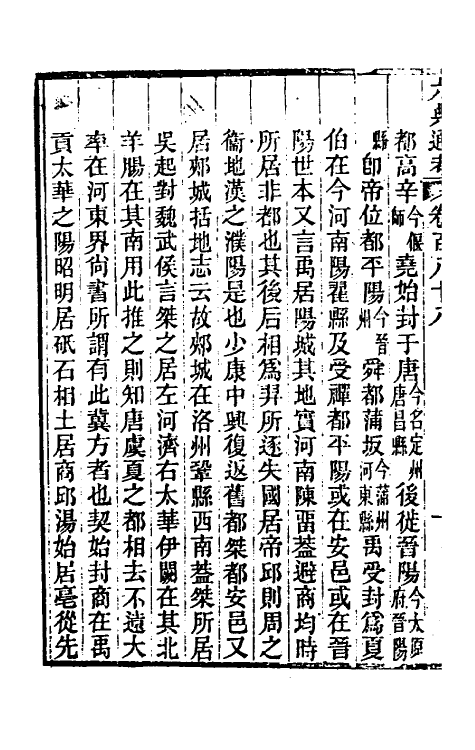 六典通考　卷百八十八
都高辛今偃師堯始封于唐今名定州唐昌縣後徙晉陽今太原府晉陽
縣卽帝位都平陽今晉州舜都蒲坂今蒲州河東縣禹受封爲夏
伯在今河南陽翟縣及受禪都平陽或在安邑或在晉
陽世本又言禹居陽城其地實河南陳畱葢避商均時
所居非都也其後后相爲羿所逐失國居帝邱則周之
衞地漢之濮陽是也少康中興復返舊都桀都安邑又
居郟城括地志云故郟城在洛州鞏縣西南葢桀所居
吳起對魏武侯言桀之居左河濟右太華伊闕在其北
羊腸在其南用此推之則知唐虞夏之都相去不遠大
率在河東界尙書所謂有此冀方者也契始封商在禹
貢太華之陽昭明居砥石相土居商邱湯始居亳從先